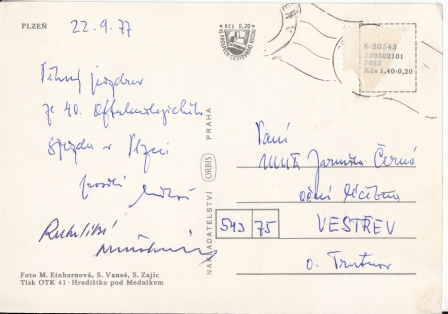 PLZEŇ
22.9.77
Kčs 0,20
VE PROSPĚCH CESTOVNÍHO RUCHU
6-20543
130302101
7023
Kčs 1,40+0,20
Pěkný pozdrav
ze 40. Oftalmologického
sjezdu v Plzni
Paní
MUDr Jarmila Černá
oční léčebna
543 75 VESTŘEV
o. Trutnov
NAKLADATELSTVÍ ORBIS PRAHA
Foto M. Einhornová, S. Vaneš, S. Zajíc
Tisk OTK 41 - Hradištko pod Medníkem